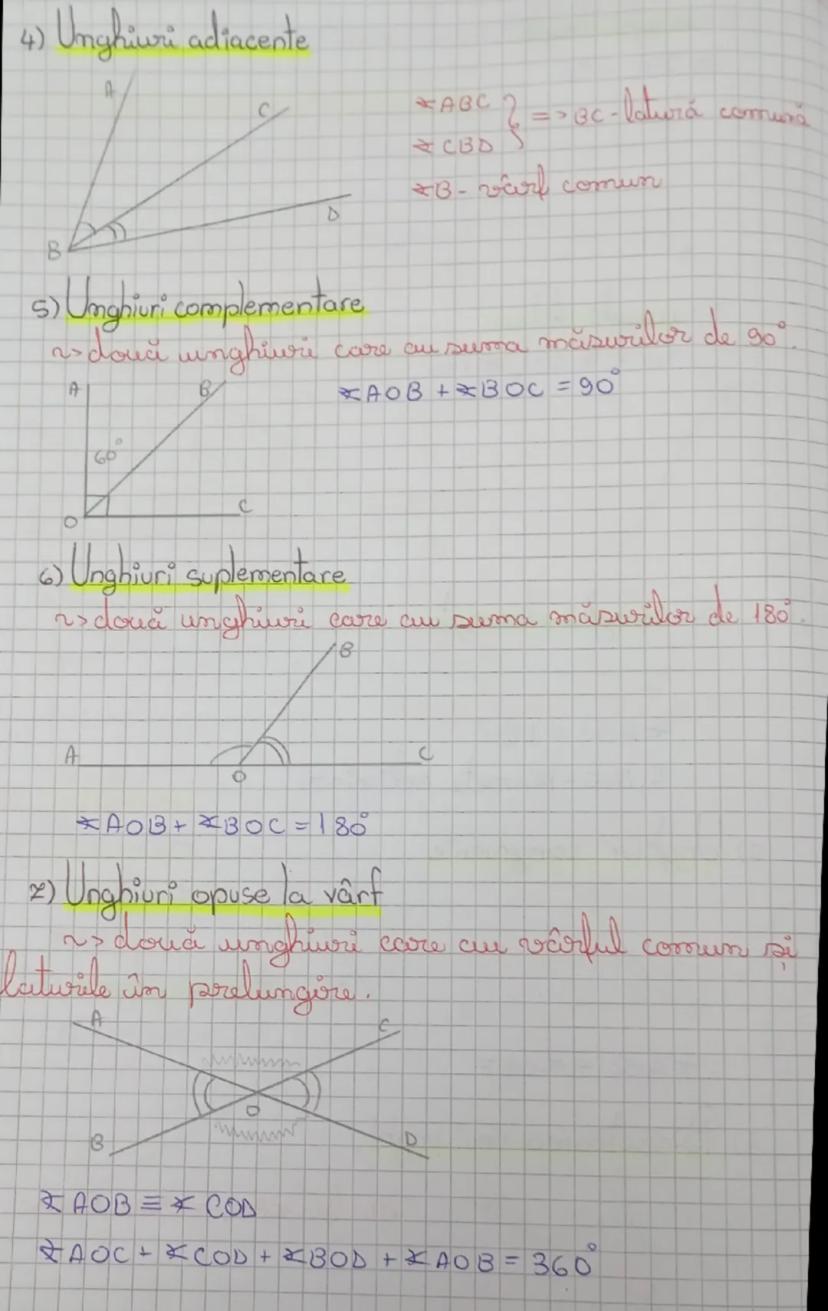 4) Unghiuri adiacente
A
C
D
B
∢ABC } => BC - latură comună
∢CBD
∢B - vârf comun
5) Unghiuri complementare
~> două unghiuri care au suma măsurilor de 90°.
A
B
60°
O
C
∢AOB + ∢BOC = 90°
6) Unghiuri suplementare
~> două unghiuri care au suma măsurilor de 180°.
B
A
O
C
∢AOB + ∢BOC = 180°
7) Unghiuri opuse la vârf
~> două unghiuri care au vârful comun și
laturile în prelungire.
A
C
O
B
D
∢AOB ≡ ∢COD
∢AOC + ∢COD + ∢BOD + ∢AOB = 360°